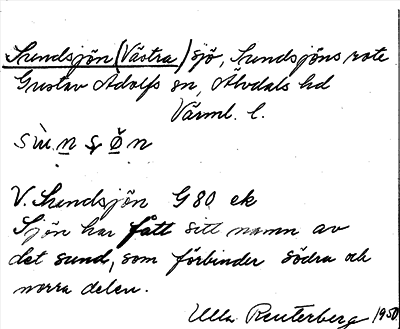 Sundsjön (Västra) sjö, Sundsjöns rote
Gustav Adolfs sn, Älvdals hd
Värml. l.
V. Sundsjön G 80 ek
Sjön har fått sitt namn av
det sund, som förbinder södra och
norra delen.
Ulla Reuterberg 1950